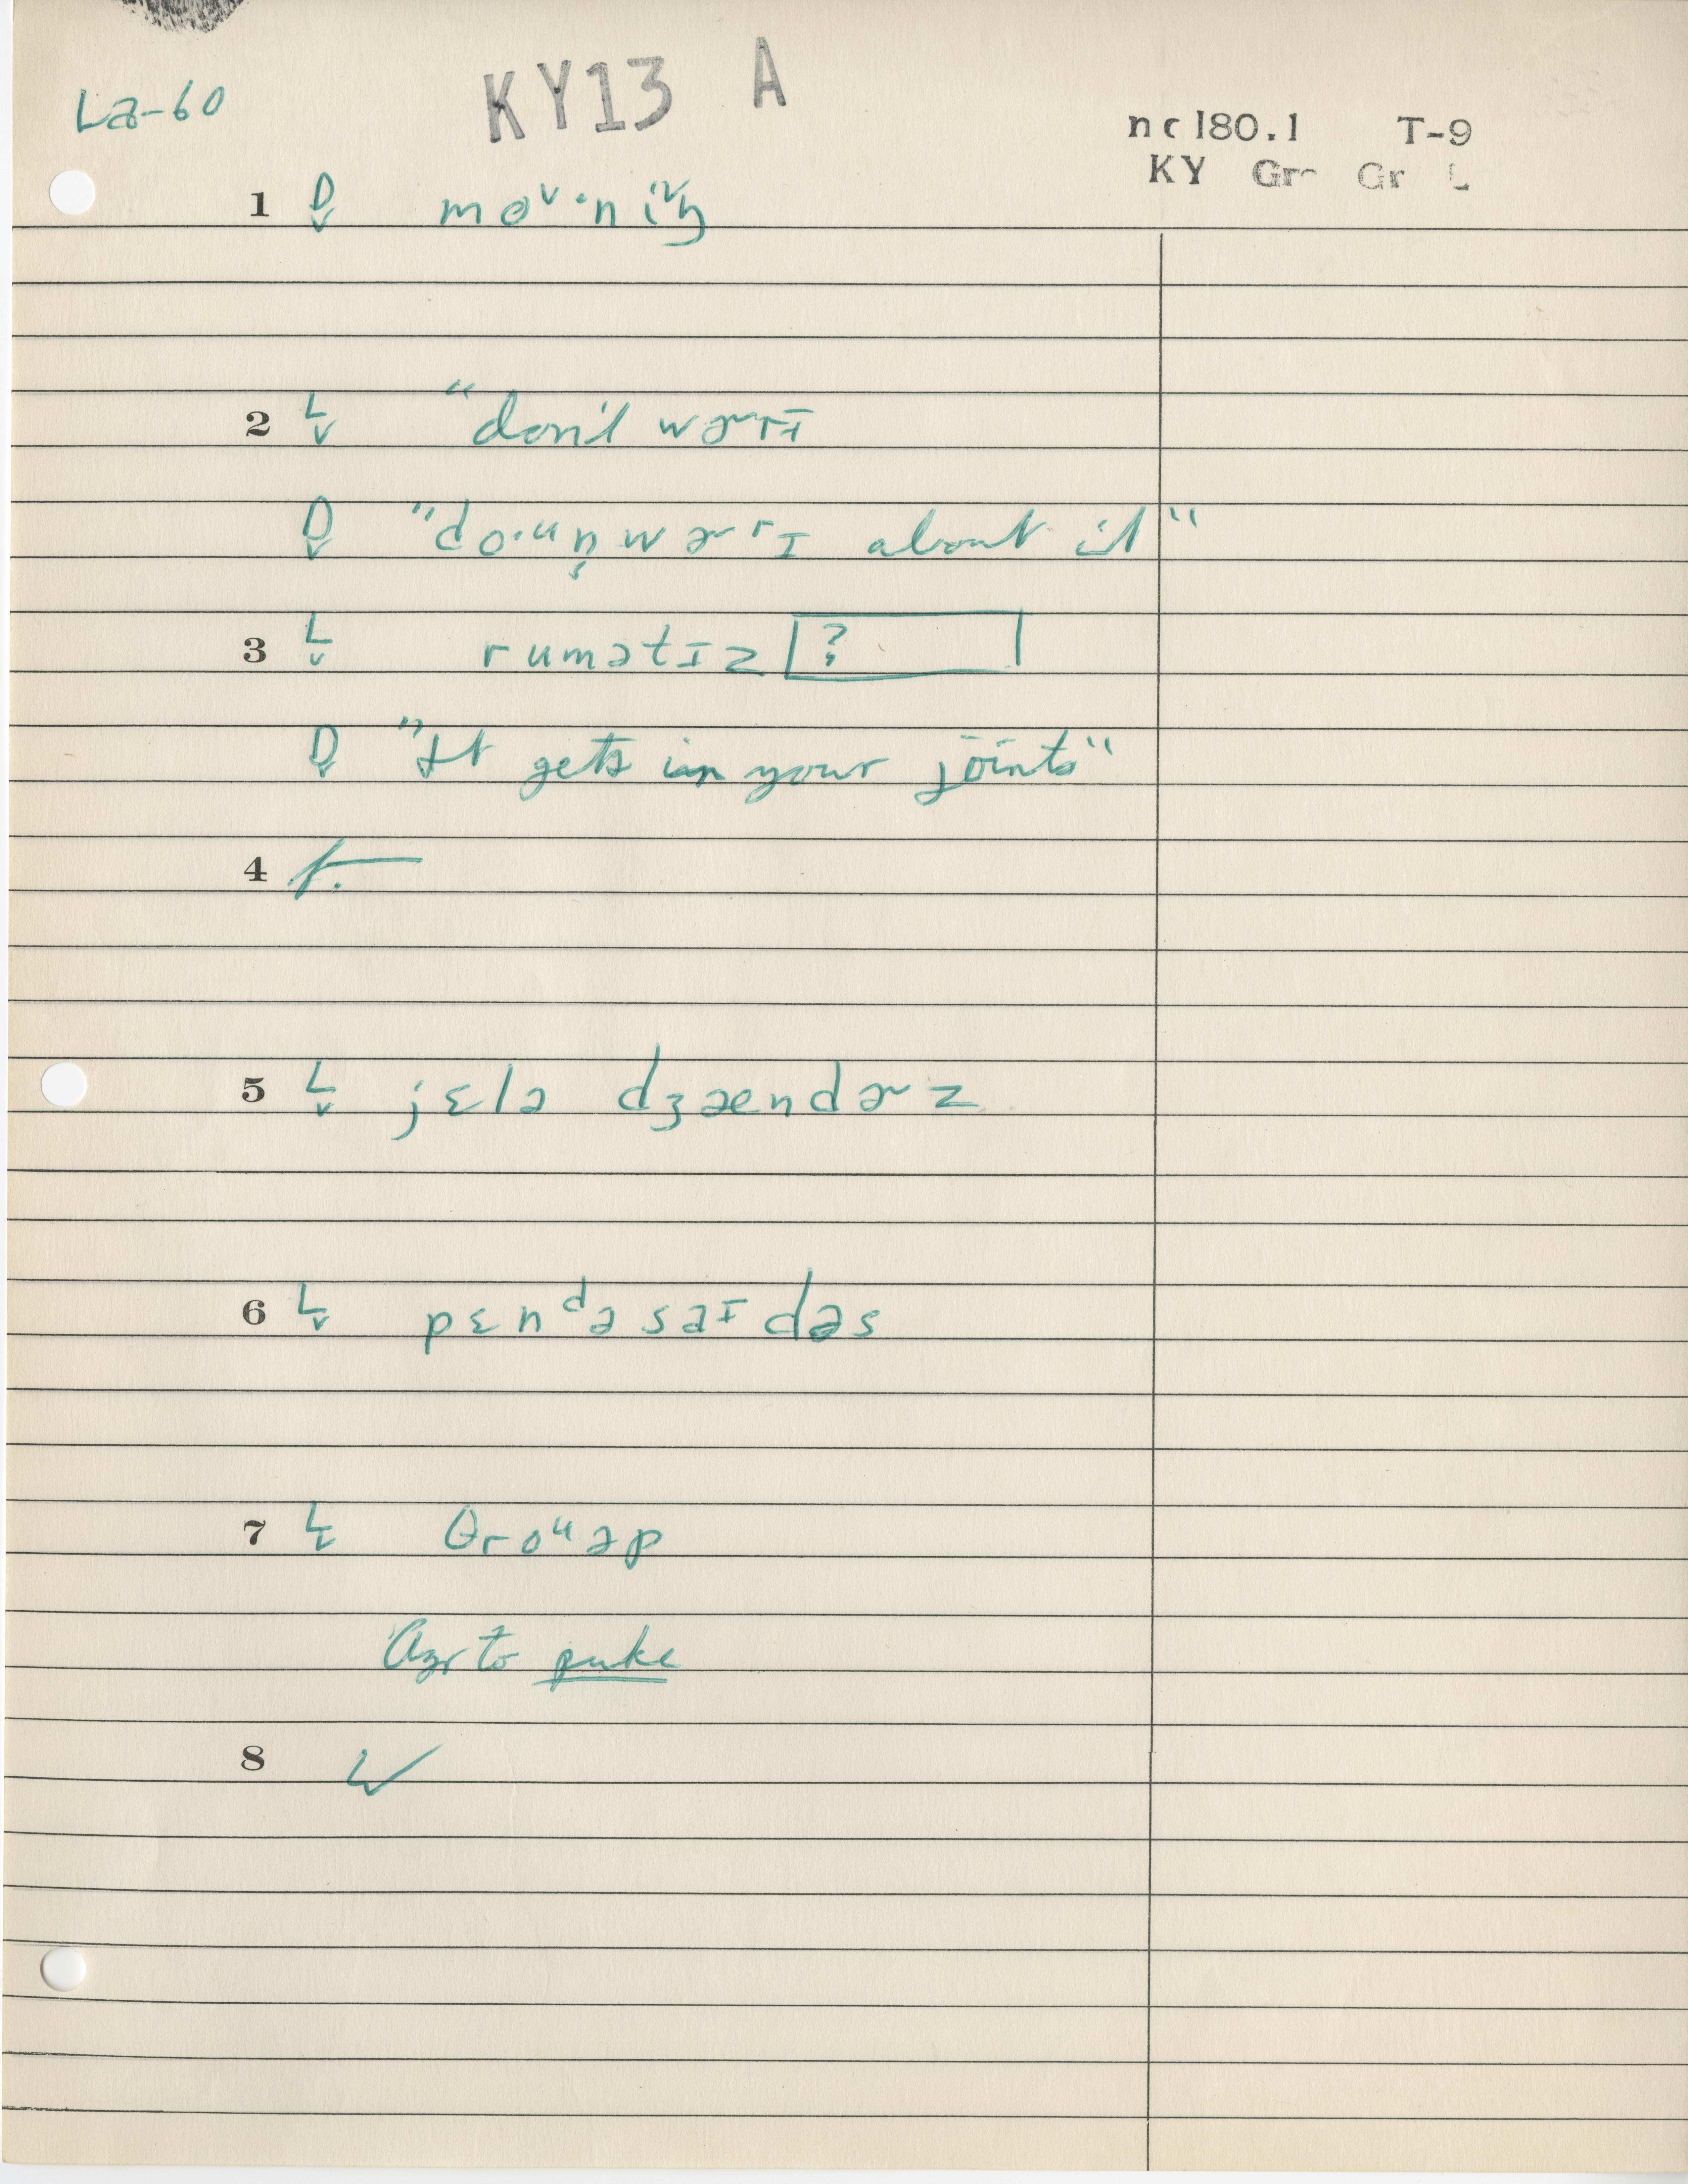 La-60
KY13 A
ncl80.1 T-9
KY Gr Gr L
1 D moᵛ·niᵛŋ
2 L "don't wɚrɪ
D "do·ᵘn̩wɚrɪ about it"
3 L rumətɪz ?
D "It gets in your joints"
4
5 L jɛlə dʒændɚz
6 L pɛnᵈəsaɪdəs
7 L θroᵘəp
Agr to puke
8 ✓